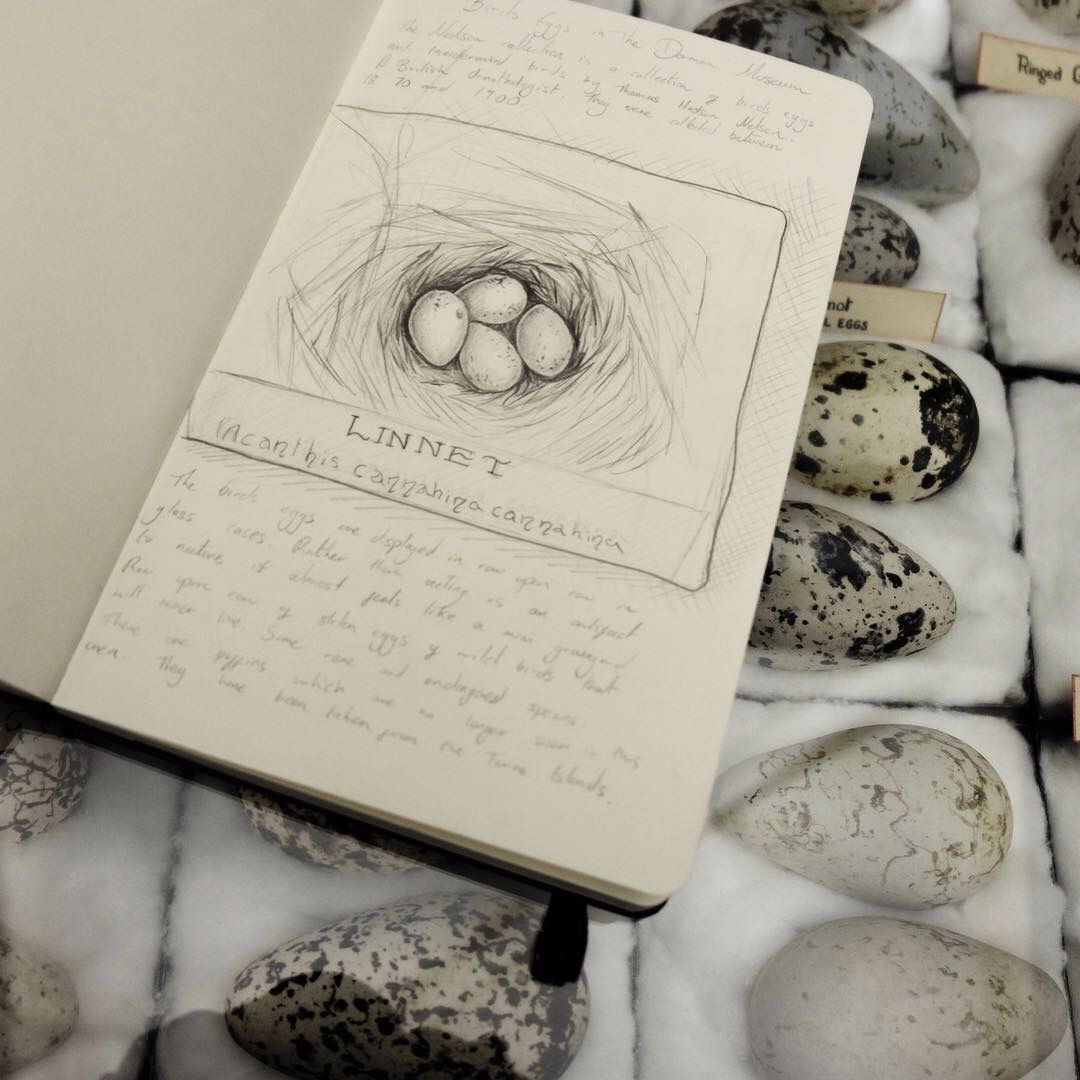 Birds Eggs in The Dorman Museum
The Nelson collection is a collection of birds eggs
and taxidermied birds by Thomas Hudson Nelson.
A British Ornithologist. They were collected between
18 70 and 1900
LINNET
(Acanthis cannahina cannahina
The birds eggs are displayed in row upon row in
glass cases. Rather than acting as an
to nature it almost feels like a mini graveyard
Row upon row of stolen eggs of wild birds that
will never live. Some rare and endangered species.
There are puffins which are no longer seen in this
area. They have been taken from the Farne Islands.
Ringed
not
L EGGS